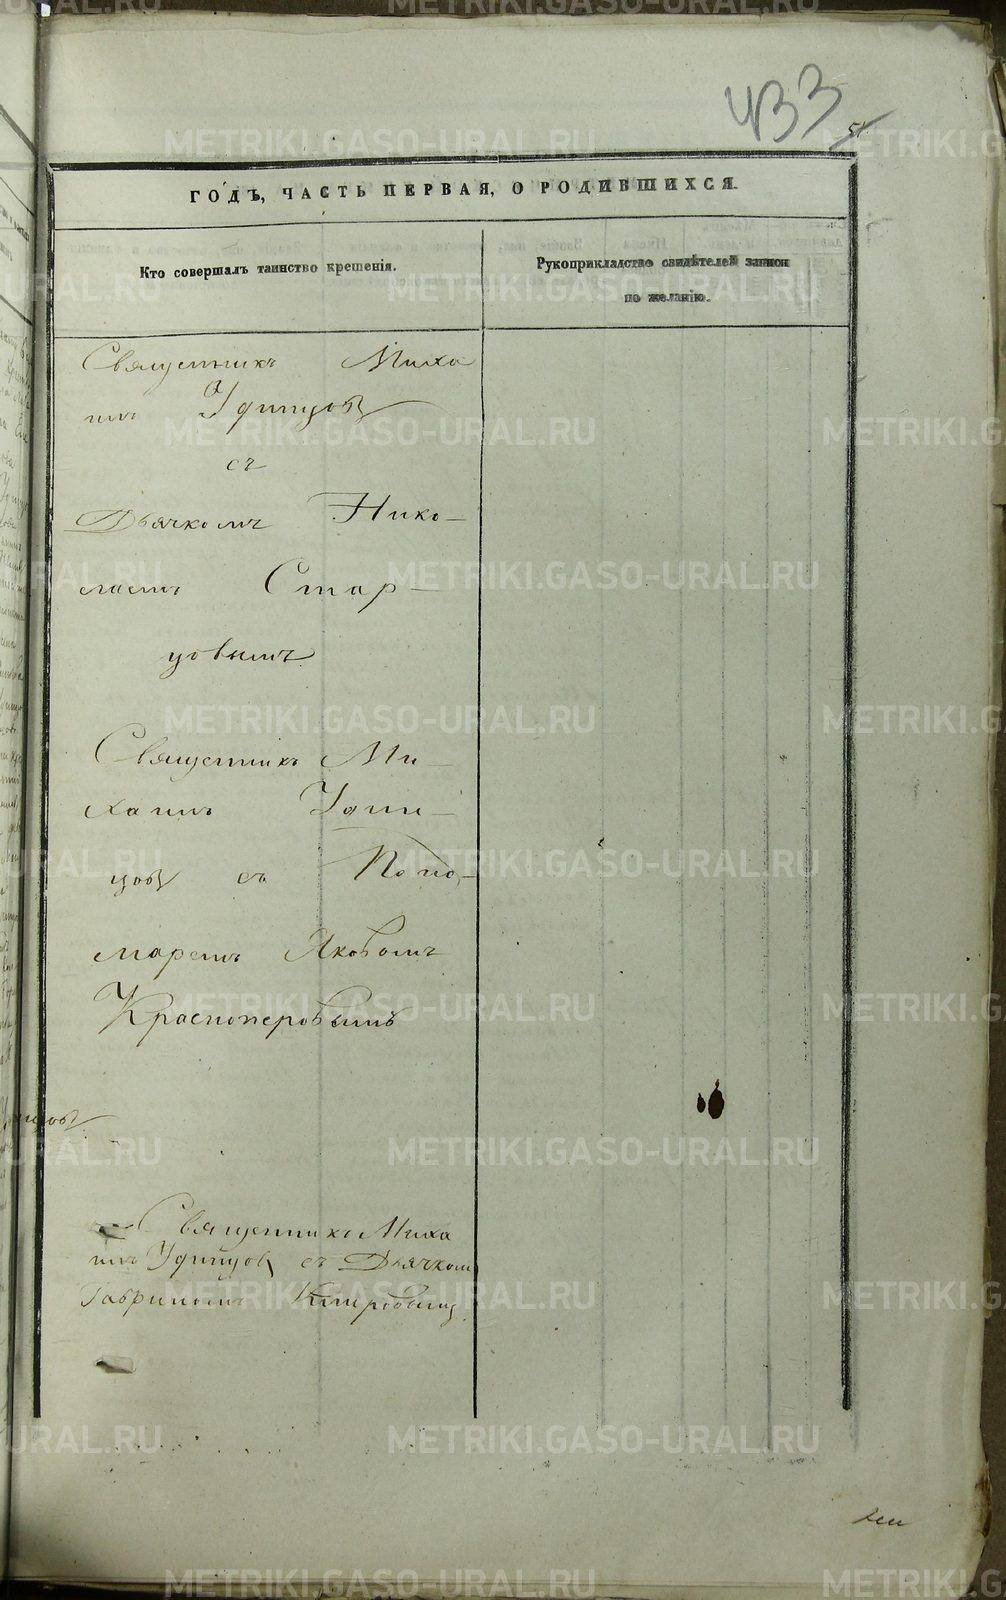 433
51
ГОДЪ, ЧАСТЬ ПЕРВАЯ, О РОДИВШИХСЯ.
Кто совершалъ таинство крещенія.
Рукоприкладство свидѣтелей записи
по желанію.
Священникъ Миха
илъ Удинцовъ
съ
Дьячкомъ Нико-
лаемъ Стар-
цовымъ
Священникъ Ми-
хаилъ Удин-
цовъ съ Поно-
маремъ Яковомъ
Красноперовымъ
Священникъ Миха
илъ Удинцовъ съ Дьячком
Гавриломъ
METRIKI.GASO-URAL.RU